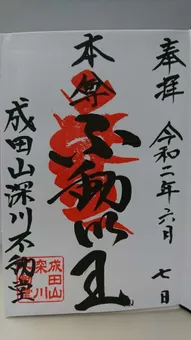 奉拝
令和二年六月七日
本尊
不動明王
成田山深川不動堂
成田山
深川